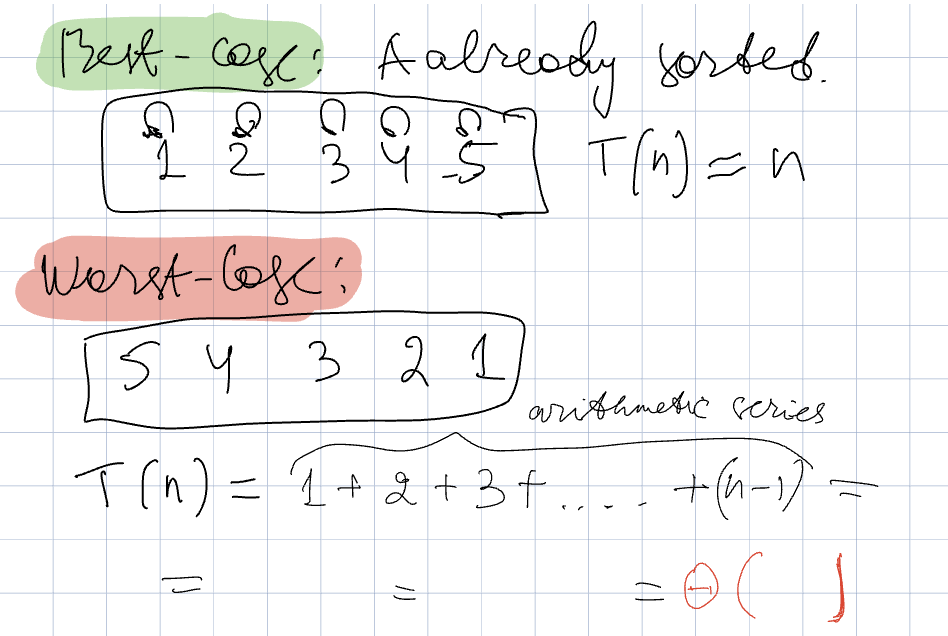 Best-case: A already sorted.
1 2 3 4 5 T(n) = n
Worst-case:
5 4 3 2 1
arithmetic series
T(n) = 1 + 2 + 3 + ..... + (n-1) =
= = = Θ( )